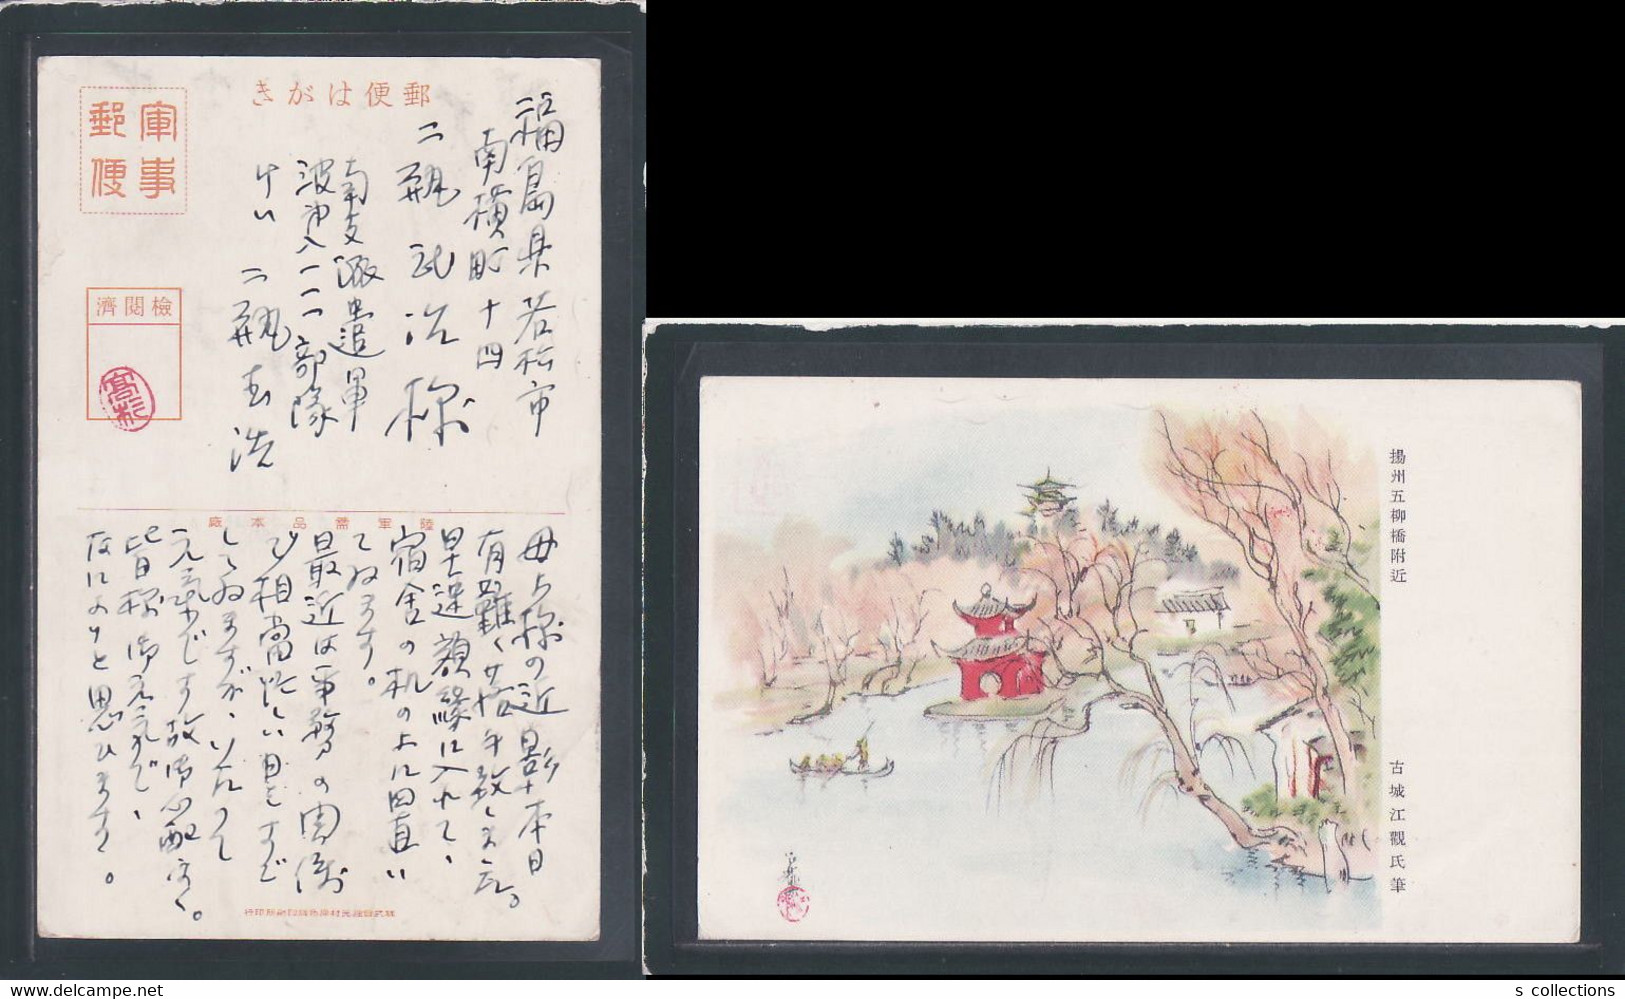 郵便はがき
軍事
郵便
檢閱濟
高杉
福島県若松市
南横町十四
二瓶武治様
南支派遣軍
波第八一一一部隊
二瓶
陸軍需品本廠
母上様の近影本日
有難く拝受致しました。
早速額縁に入れて、
宿舎の机の上に置い
てゐます。
最近は事務の関係
で相当忙しい日をすご
してゐますが、いたって
元気です故御心配なく。
皆様御元気で、
なによりと思ひます。
揚州五柳橋附近
古城江觀氏筆
s collections